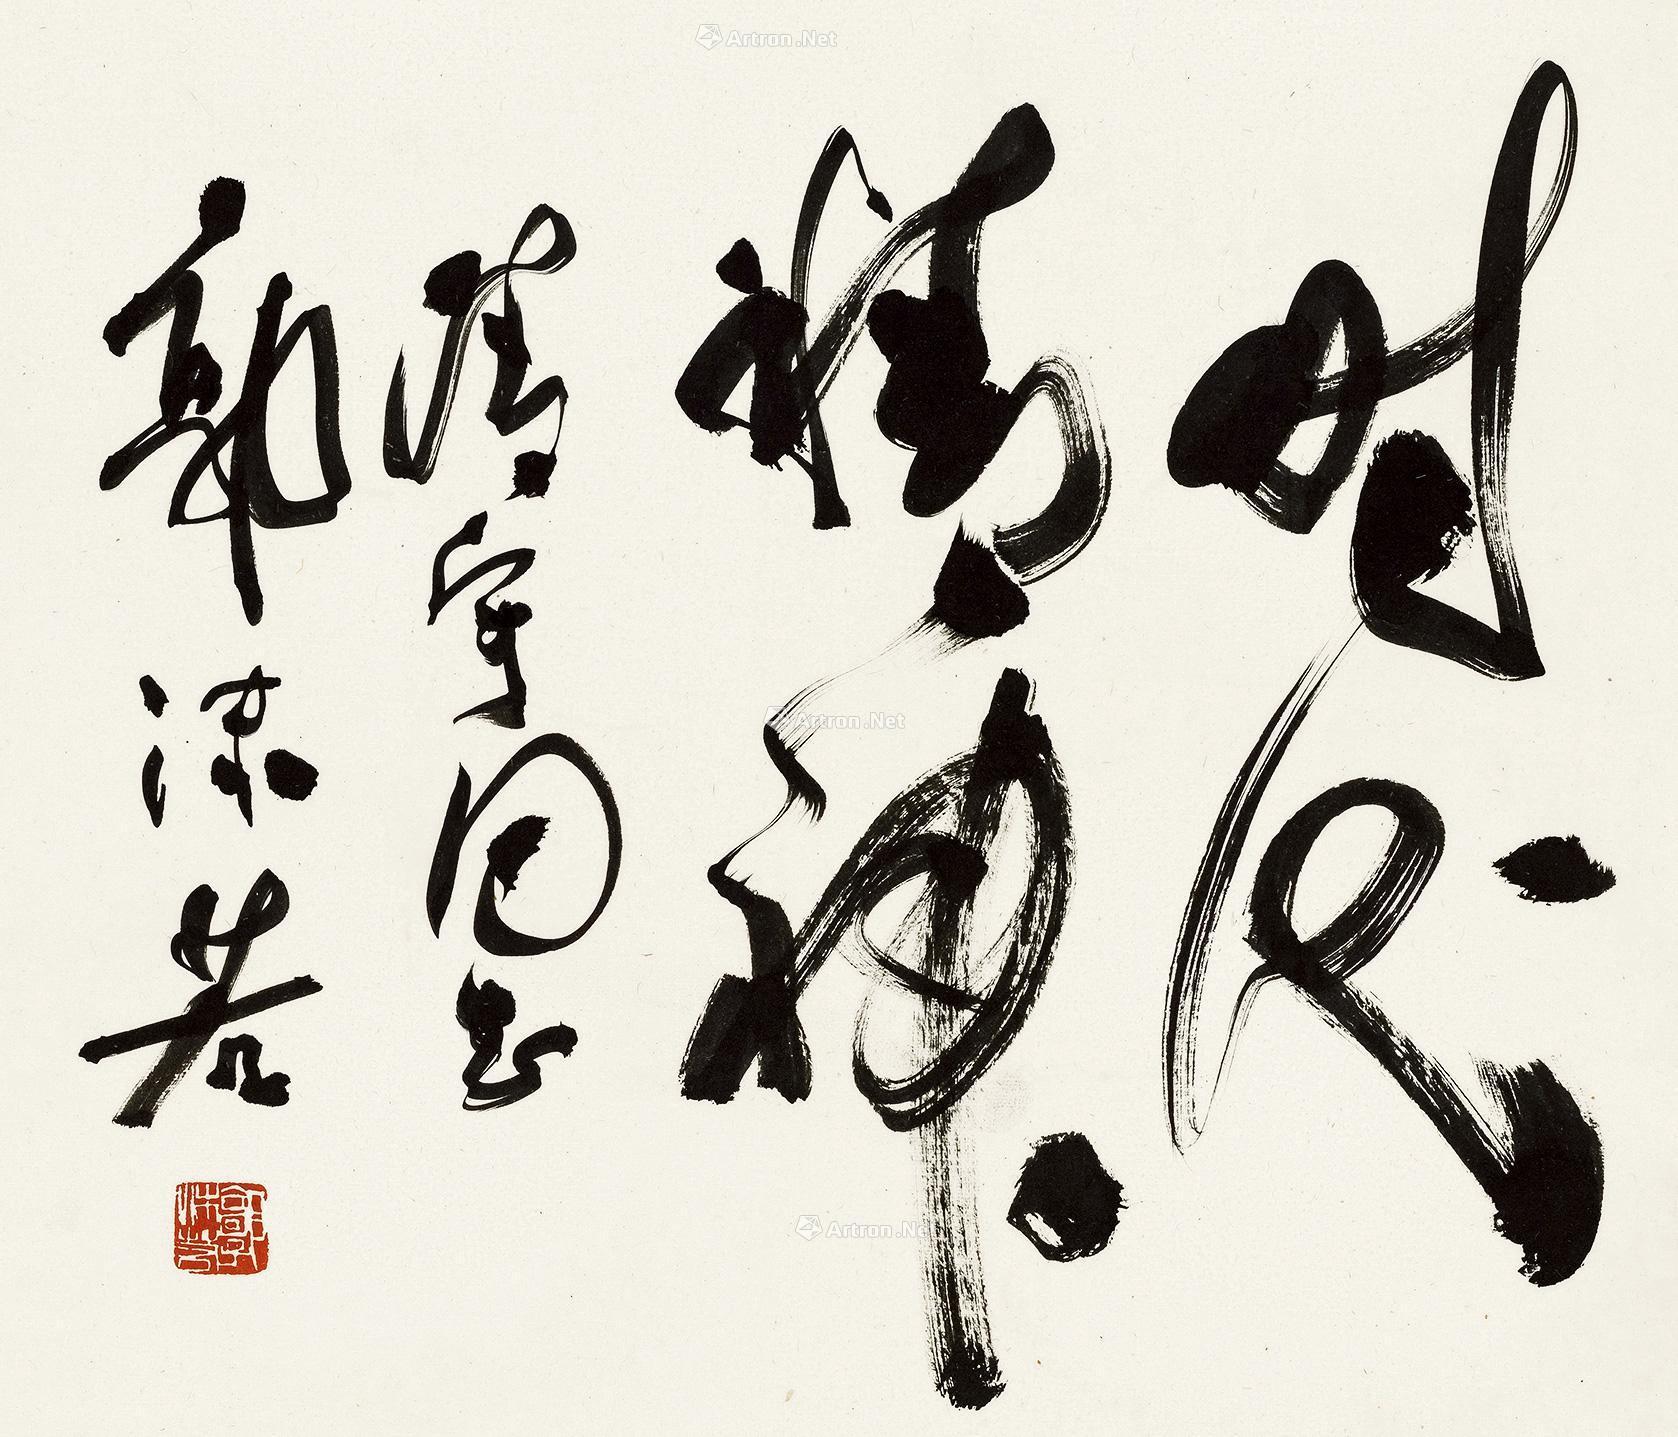 时代
精神
清宇同志
郭沫若
Artron.Net
Artron.Net
Artron.Net